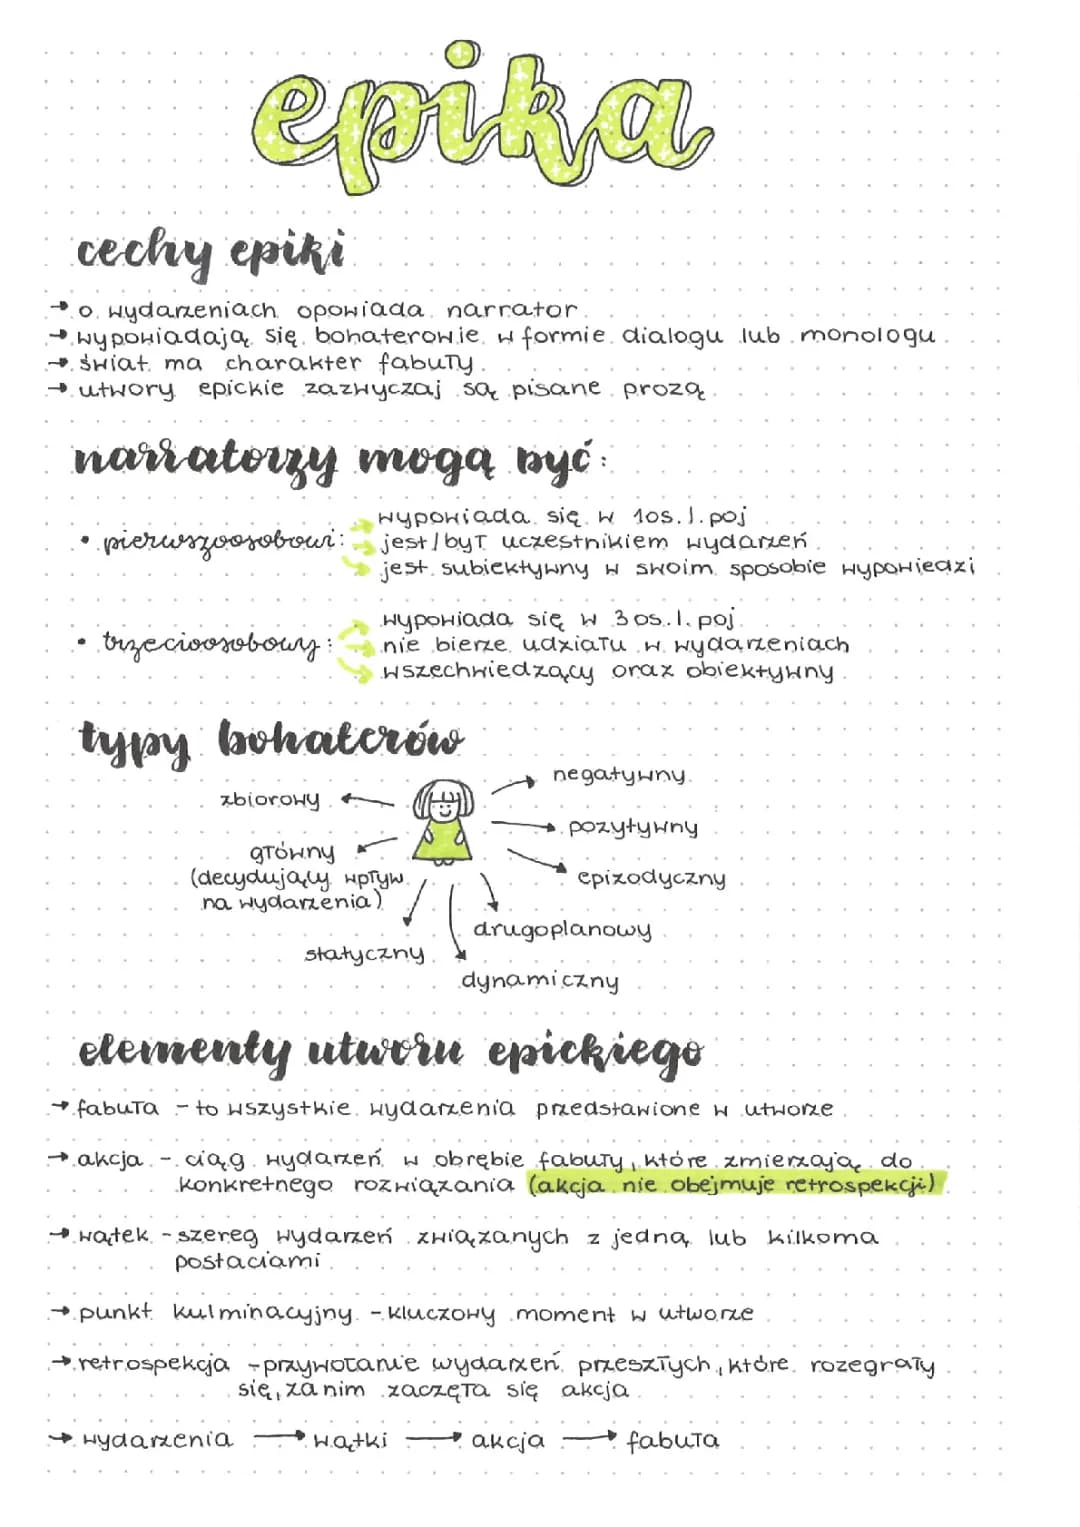 epika
cechy epiki
→ o wydarzeniach opowiada narrator
→ wypowiadają się bohaterowie w formie dialogu lub monologu
→ świat ma charakter fabuły
→ utwory epickie zazwyczaj są pisane prozą
narratorzy mogą być:
• pierwszoosobowi:
→ wypowiada się w 1os. l. poj
→ jest/był uczestnikiem wydarzeń
→ jest subiektywny w swoim sposobie wypowiedzi
• trzecioosobowy:
→ wypowiada się w 3 os. l. poj
→ nie bierze udziału w wydarzeniach
→ wszechwiedzący oraz obiektywny
typy bohaterów
negatywny
zbiorowy
pozytywny
główny
(decydujący wpływ
na wydarzenia)
epizodyczny
drugoplanowy
statyczny
dynamiczny
elementy utworu epickiego
→ fabuła - to wszystkie wydarzenia przedstawione w utworze
→ akcja - ciąg wydarzeń w obrębie fabuły, które zmierzają do
konkretnego rozwiązania (akcja nie obejmuje retrospekcji)
→ wątek - szereg wydarzeń związanych z jedną lub kilkoma
postaciami
→ punkt kulminacyjny - kluczowy moment w utworze
→ retrospekcja - przywołanie wydarzeń przeszłych, które rozegrały
się, zanim zaczęła się akcja
→ wydarzenia → wątki → akcja → fabuła